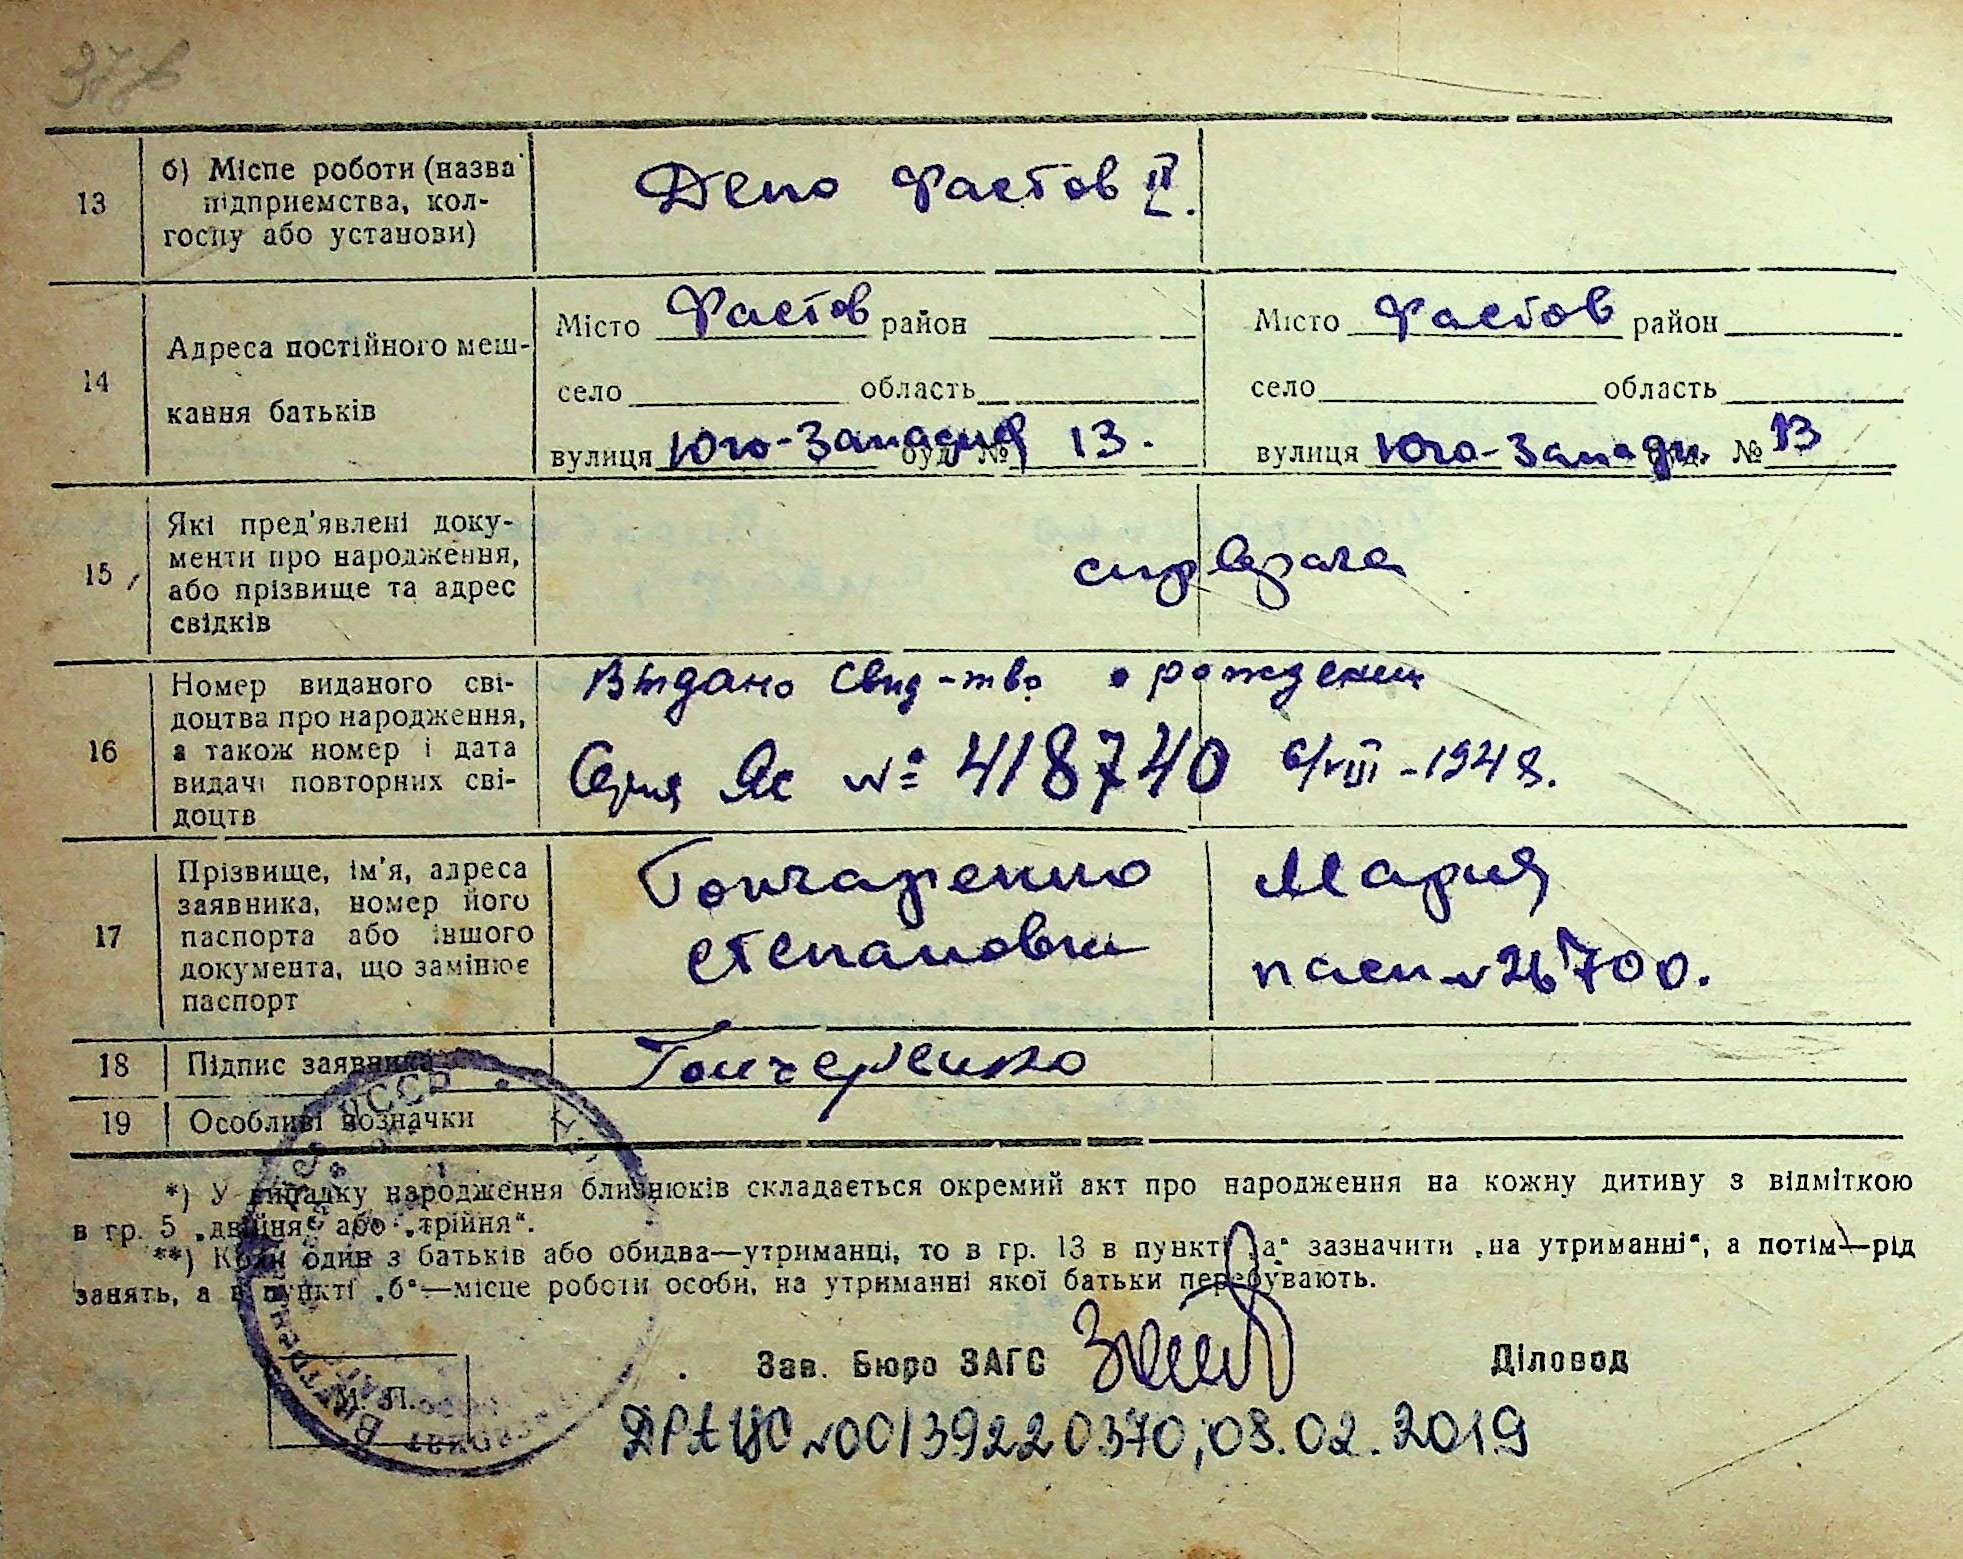 13
б) Місце роботи (назва
підприємства, кол-
госпу або установи)
Депо Фастов II.
14
Адреса постійного меш-
кання батьків
Місто Фастов район
село область
вулиця Юго-Западная буд. № 13.
Місто Фастов район
село область
вулиця Юго-Западн. буд. № 13
15
Які пред'явлені доку-
менти про народження,
або прізвище та адрес
свідків
спр врача
16
Номер виданого сві-
доцтва про народження,
а також номер і дата
видачі повторних сві-
доцтв
Выдано свид-тво о рождении
Серия Яс № 418740 6/VIII-1948.
17
Прізвище, ім'я, адреса
заявника, номер його
паспорта або іншого
документа, що замінює
паспорт
Гончаренко Мария
Степановна
пасп № 26700.
18
Підпис заявника
Гончаренко
19
Особливі позначки
*) У випадку народження близнюків складається окремий акт про народження на кожну дитину з відміткою
в гр. 5 „двійня" або „трійня".
**) Коли один з батьків або обидва—утриманці, то в гр. 13 в пункті „а" зазначити „на утриманні", а потім—рід
занять, а в пункті „б"—місце роботи особи, на утриманні якої батьки перебувають.
Зав. Бюро ЗАГС
Діловод
М. П.
ДРАЦС № 00139220370; 08.02.2019